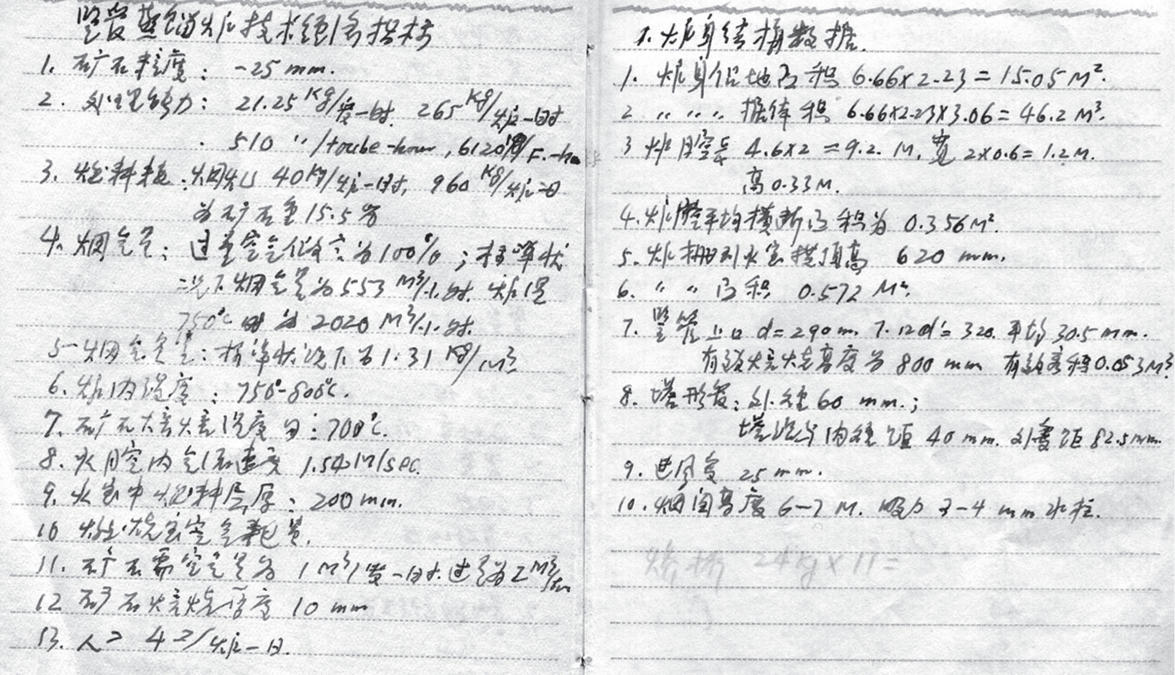 竖管蒸馏炉技术经济指标
1. 矿石粒度: -25 mm.
2. 处理能力: 21.25 Kg/管-时. 265 Kg/炉-时
510 〃/toube-hour, 6120 F.-
3. 燃料耗. 烟煤 40 Kg/炉-时, 960 Kg/炉-日
为矿石重15.5%
4. 烟气量: 过量空气系数为100%; 标准状
况下烟气量为553 M³/小时. 炉温
750°C 时为2020 M³/小时.
5 烟气重量: 标准状况下为1.31 Kg/M³
6. 炉内温度: 750°-800°C.
7. 矿石焙烧温度为: 700°C.
8. 火腔内气流速度 1.54 M/sec.
9. 火室中燃料层厚: 200 mm.
10 燃烧室空气耗量.
11. 矿石需空气量为 1 M³/管-时. 过量为2 M³/
12 矿石焙烧厚度 10 mm
13. 人工 4工/炉-日.
1. 炉身结构数据.
1. 炉身佔地面积 6.66×2.23 = 15.05 M².
2 〃 〃 〃 体积 6.66×2.23×3.06 = 46.2 M³.
3 炉膛长 4.6×2 = 9.2. M, 宽 2×0.6 = 1.2 M.
高 0.33 M.
4. 炉膛平均横断面积为 0.356 M².
5. 炉栅到火室拱顶高 620 mm.
6. 〃 〃 面积 0.572 M².
7. 竖管上口 d = 290 m. 下口d = 320. 平均 30.5 mm.
有效焙烧高度为 800 mm 有效容积 0.053 M³
8. 塔形管: 外径 60 mm.;
塔 与内径距 40 mm. 外 距 82.5 mm.
9. 进风管 25 mm.
10. 烟囱高度 6-7 M. 吸力 3-4 mm 水柱.
24 Kg × 11 =